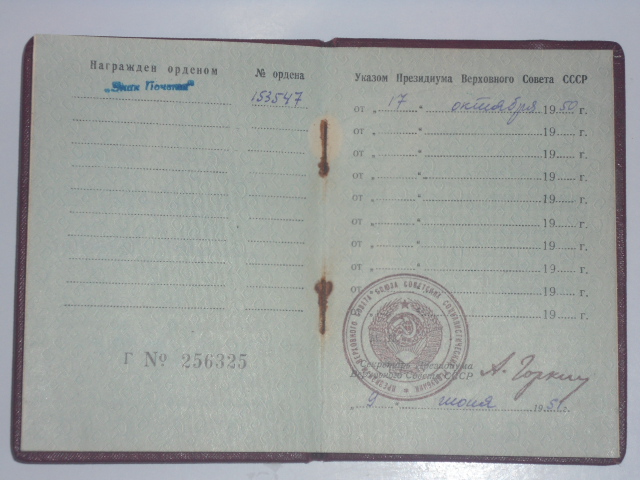 Награжден орденом
№ ордена
„Знак Почета"
153547
Г № 256325
Указом Президиума Верховного Совета СССР
от „ 17 " октября 1950 г.
от „ " 19 г.
от „ " 19 г.
от „ " 19 г.
от „ " 19 г.
от „ " 19 г.
от „ " 19 г.
от „ " 19 г.
от „ " 19 г.
от „ " 19 г.
Секретарь Президиума
Верховного Совета СССР
А. Горкин
„ 9 " июня 1951 г.